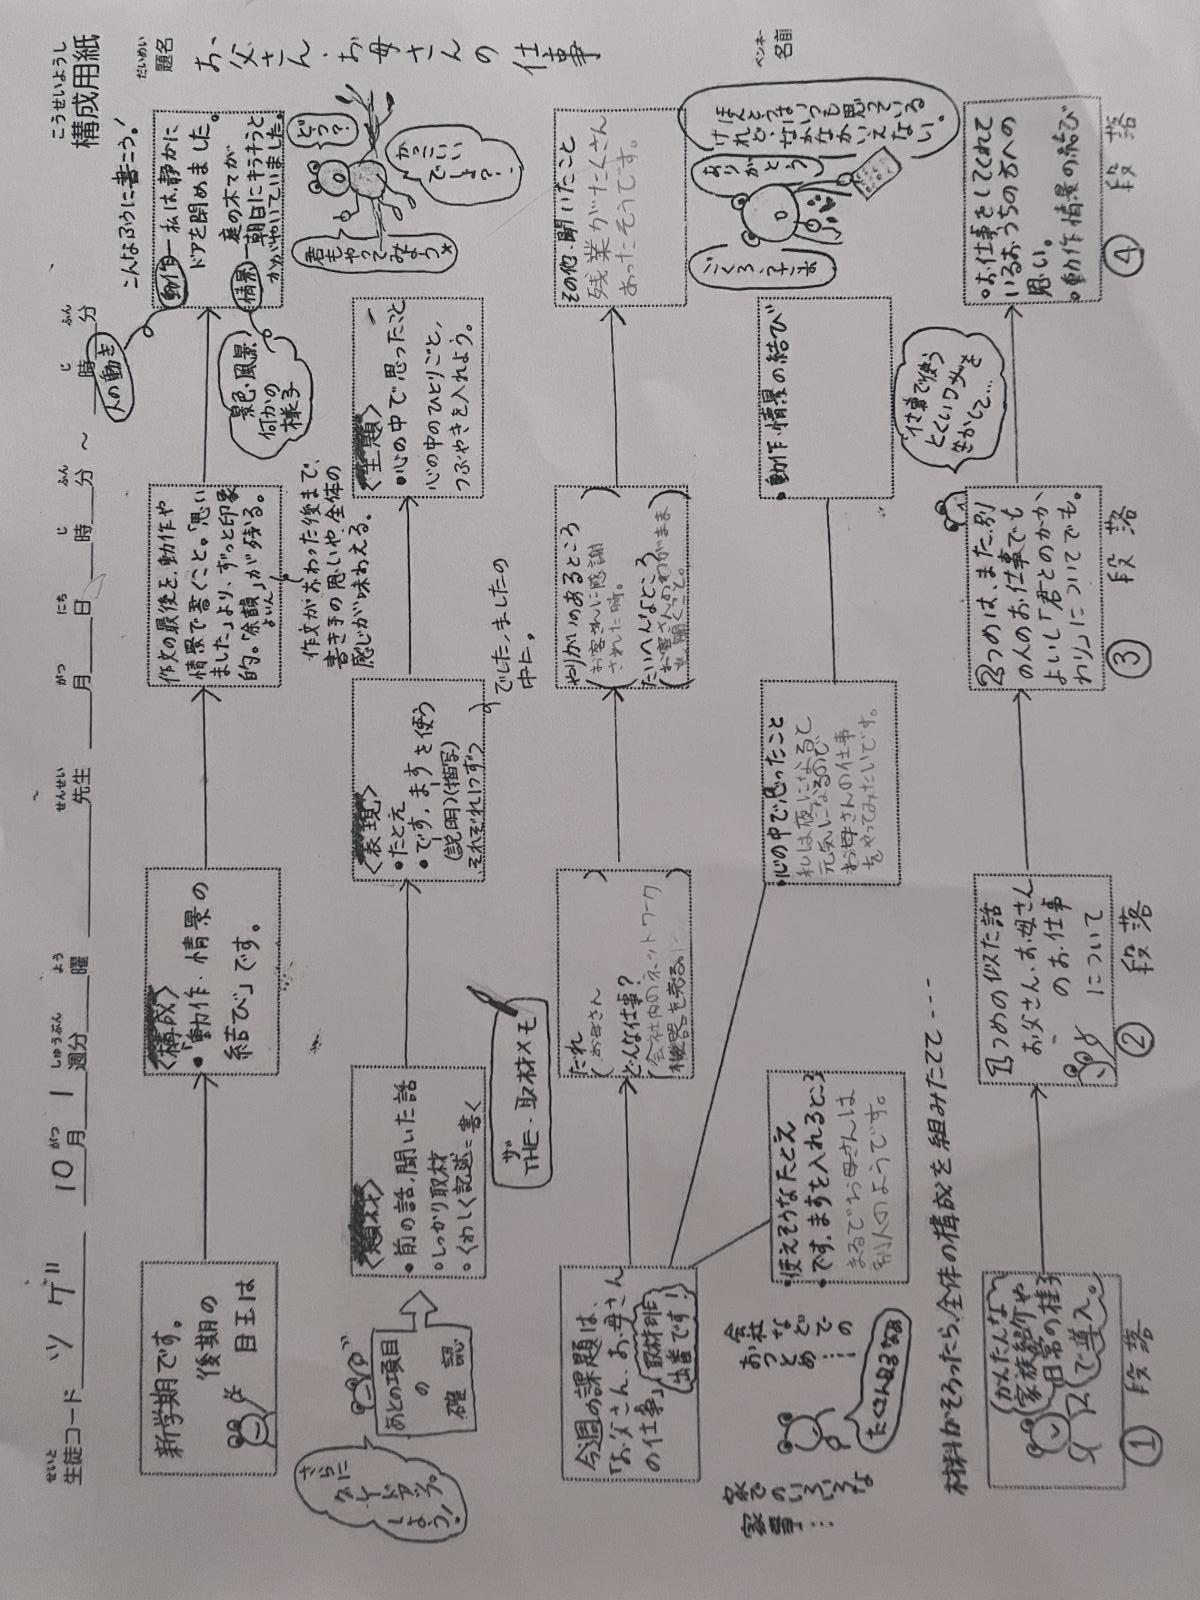 こうせいようし
構成用紙
だいめい
題名
お父さん、お母さんの仕事
ペンネーム
名前
せいと
生徒コード ツゲ 10月 1週分 曜 先生 月 日 時 分 〜 時 分
がつ しゅうぶん よう せんせい がつ にち じ ふん じ ふん
新学期です。
後期の
目玉は
〈構成〉
・「動作・情景の
結び」です。
作文の最後を、動作や
情景で書くこと。「思い
ました」より、ずっと印象
的。「余韻」が残る。
よいん
作文がおわった後まで、
書き手の思いや、全体の
感じが味わえる。
こんなふうに書こう!
動作―私は、静かに
ドアを閉めました。
庭の木てが
情景―朝日にキラキラと
かがやいていました。
人の動き
景色、風景、
何かの
様子
どう?
かっこいい
でしょ?
君もやってみよう
さらに
グレードアップ
しよう!
あとの項目
の
確認
〈題材〉
・前の話、聞いた話
・しっかり取材
・くわしく記述=書く
〈表現〉
・たとえ
・です、ますを使う
(説明)(描写)
それぞれ1つずつ
でした、ましたの
中に。
〈主題〉
・心の中で思ったこと
心の中のひとりごと、
つぶやきを入れよう。
ザ
THE・取材メモ
今週の課題は、
「お父さん、お母さん
の仕事」
取材班
出番です!
だれ
(お母さん)
どんな仕事?
(会社内のネットワーク
機器を売る。)
やりがいのあるところ
(お客さまに感謝
された時。)
たいへんなところ
(お客さんのわがまま
も聞くこと。)
その他・聞いたこと
残業がたくさん
あったそうです。
お会社
つとめ
などでの
……
家での
いろいろな
家事…
たくさんあるなあ
・使えそうなたとえ
・です、ますを入れるところ
まるでお母さんは
別人のようです。
・心の中で思ったこと
私は夜になると
元気になるので
お母さんの仕事
をやってみたいです。
・動作・情景の結び
ごくろうさま
ありがとう
ほんとうはいつも思っている
けれど、なかなかいえ
ない。
材料がそろったら、全体の構成を組みたてて---
かんたんな
家族紹介や
日常の様子
で導入。
①段落
1つめの似た話
お父さん、お母さん
のお仕事
について
②段落
2つめは、また、別
の人のお仕事でも
よいし「君とのかか
わり」についてでも。
③段落
仕事で使う
とくいワザを
生かして…
・お仕事をしてくれて
いるおうちの方への
思い。
・動作・情景の結び
④段落